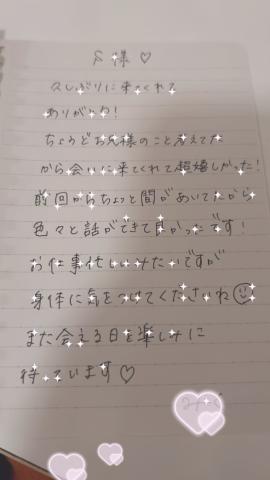 S様♡
久しぶりに来てくれて
ありがとね!
ちょうどお兄様のこと考えてた
から会いに来てくれて超嬉しかった!
前回からちょっと間があいてたから
色々と話ができて良かったです!
お仕事忙しいみたいですが
身体に気をつけてくださいね☺
また会える日を楽しみに
待っています♡